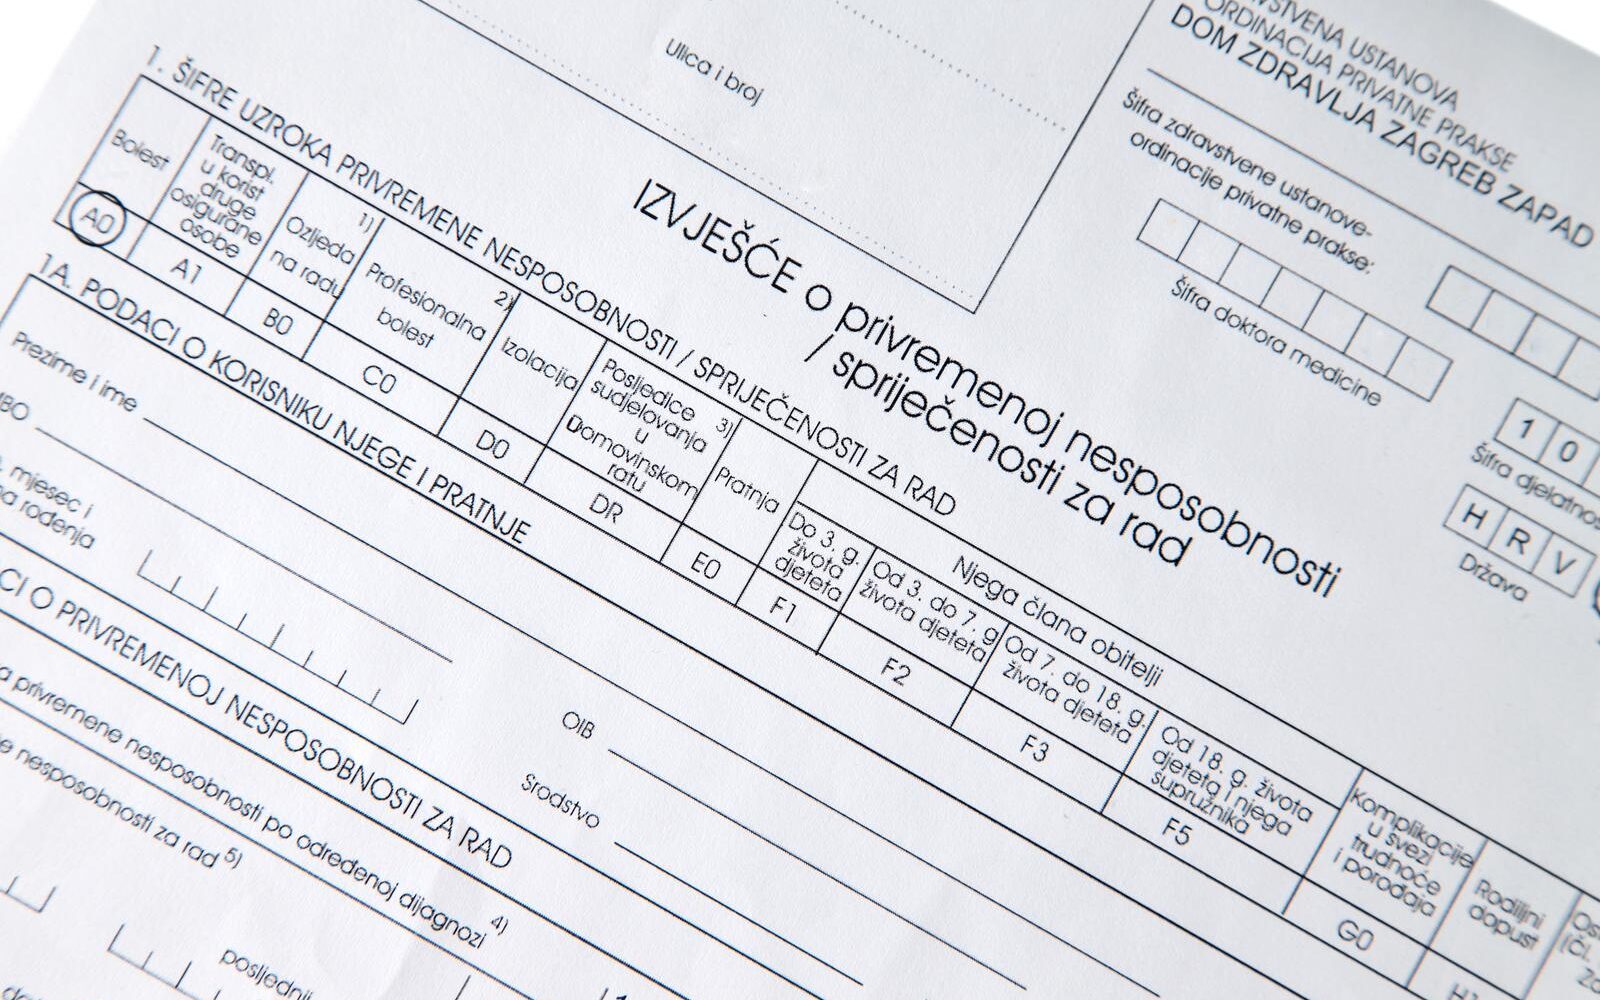 USTANOVA
ORDINACIJA PRIVATNE PRAKSE
DOM ZDRAVLJA ZAGREB ZAPAD
Šifra zdravstvene ustanove-
ordinacije privatne prakse:
Šifra doktora medicine
1 0
Šifra
H R V
Država
Ulica i broj
IZVJEŠĆE o privremenoj nesposobnosti
/ spriječenosti za rad
1. ŠIFRE UZROKA PRIVREMENE NESPOSOBNOSTI / SPRIJEČENOSTI ZA RAD
Bolest
A0
Transpl.
u korist
druge
osigurane
osobe
A1
1)
Ozljeda
na radu
B0
2)
Profesionalna
bolest
C0
Izolacija
D0
3)
Posljedice
sudjelovanja
u
Domovinskom
ratu
DR
Pratnja
E0
Njega člana obitelji
Do 3. g.
života
djeteta
F1
Od 3. do 7. g
života djeteta
F2
Od 7. do 18. g.
života djeteta
F3
Od 18. g. života
djeteta i njega
supružnika
F5
Komplikacije
u svezi
trudnoće
i porođaja
G0
Rodiljni
dopust
(čl.
1A. PODACI O KORISNIKU NJEGE I PRATNJE
Prezime i ime
MBO
mjesec i
rođenja
OIB
Srodstvo
O PRIVREMENOJ NESPOSOBNOSTI ZA RAD
privremene nesposobnosti po određenoj dijagnozi 4)
nesposobnosti za rad 5)